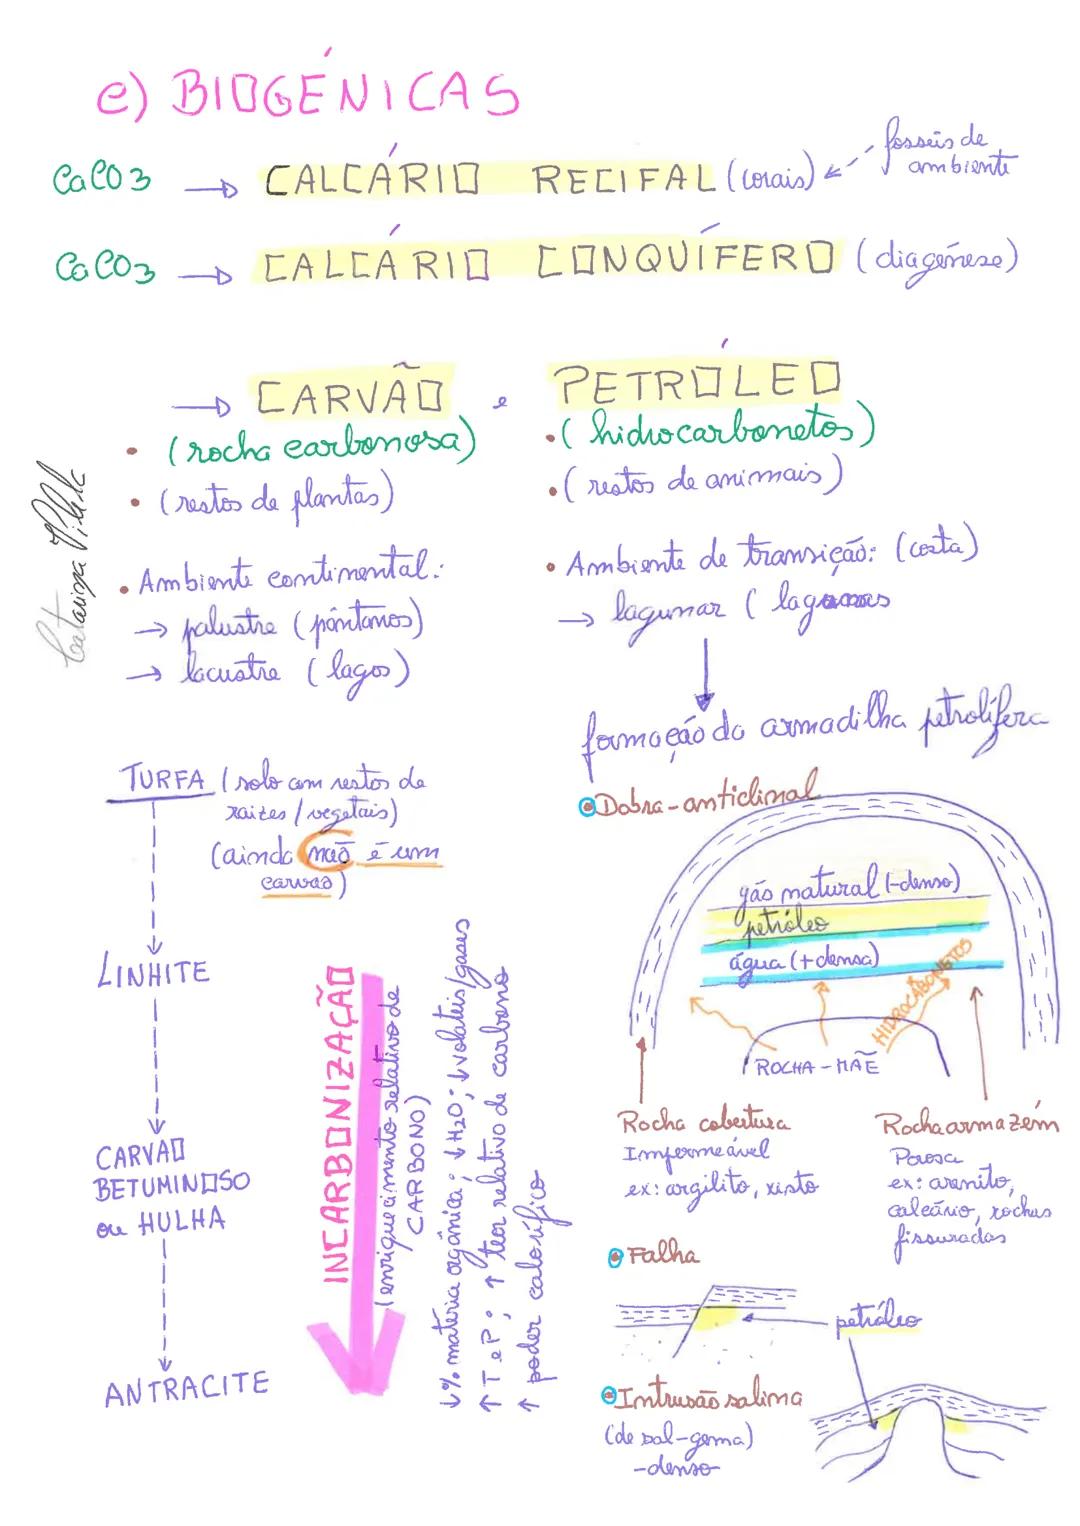 e) BIOGÉNICAS
CaCO3 → CALCÁRIO RECIFAL (corais) ← fosseis de
ambiente
CaCO3 → CALCÁRIO CONQUÍFERO (diagénese)
→ CARVÃO e PETRÓLEO
• (rocha carbonosa)
• (restos de plantas)
• Ambiente continental:
→ palustre (pântanos)
→ lacustre (lagos)
• (hidrocarbonetos)
• (restos de animais)
• Ambiente de transição: (costa)
→ lagunar (lagunas
formação da armadilha petrolífera
Catarina
TURFA (solo com restos de
raízes/vegetais)
(ainda não é um
carvão)
LINHITE
CARVÃO
BETUMINOSO
ou HULHA
ANTRACITE
INCARBONIZAÇÃO
(enriquecimento relativo de
CARBONO)
↓% matéria orgânica; ↓H2O; ↓voláteis/gases
↑T e P; ↑ teor relativo de carbono
↑ poder calorífico
Dobra-anticlinal
gás natural (-denso)
petróleo
água (+densa)
HIDROCABONETOS
ROCHA-MÃE
Rocha cobertura
Impermeável
ex: argilito, xisto
Rocha armazém
Porosa
ex: arenito,
calcário, rochas
fissuradas
Falha
petróleo
Intrusão salina
(de sal-gema)
-denso